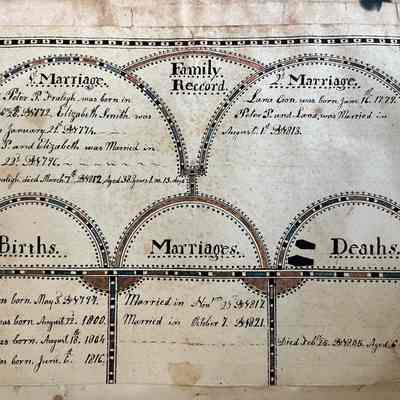 Family
Reccord.
1. Marriage.
Peter P. Fraligh was born in
1772. Elizabeth Smith was
January 21st 1774.
P. and Elizabeth was Married in
23d 1796.
died March 7th 1812 Aged 38 Years 1 m. 15 days
2d Marriage.
Lana Coon was born June 16th 1779.
Peter P. and Lana, was Married in
August 1st 1813.
Births.
was born May 8th 1797.
was born August 12th 1800.
was born August 18th 1804
was born June 6th 1816.
Marriages.
Married in Novr 25th 1817.
Married in October 7. 1821.
Deaths.
Died Feby 1805. Aged 6